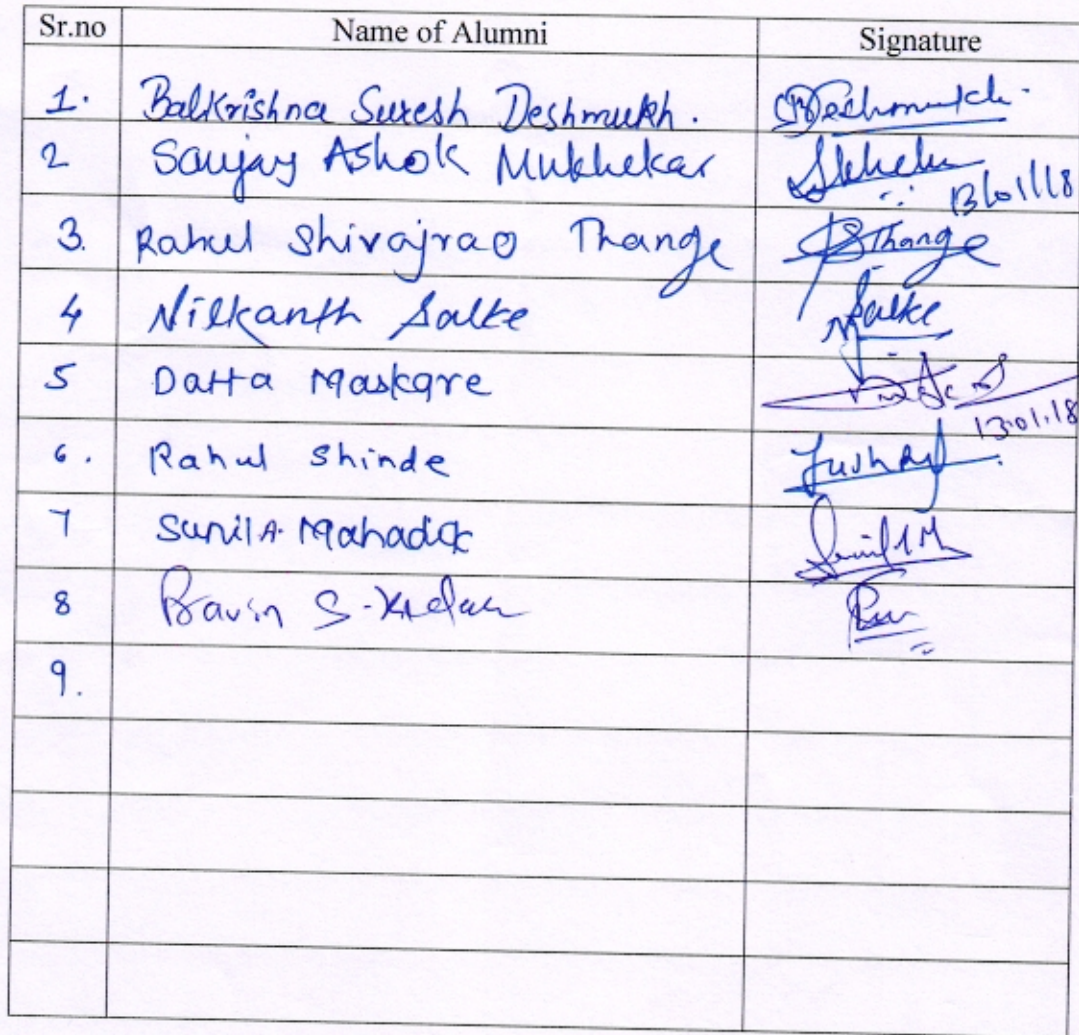 Sr.no Name of Alumni Signature
1. Balkrishna Suresh Deshmukh. Deshmukh.
2 Sanjay Ashok Mukhekar
13/01/18
3. Rahul Shivajirao Thange SThange
4 Nilkanth Salke Salke
5 Datta Maskare
13.01.18
6. Rahul Shinde
7 Sunil A. Mahadik Sunil AM
8 Pravin S.
9.